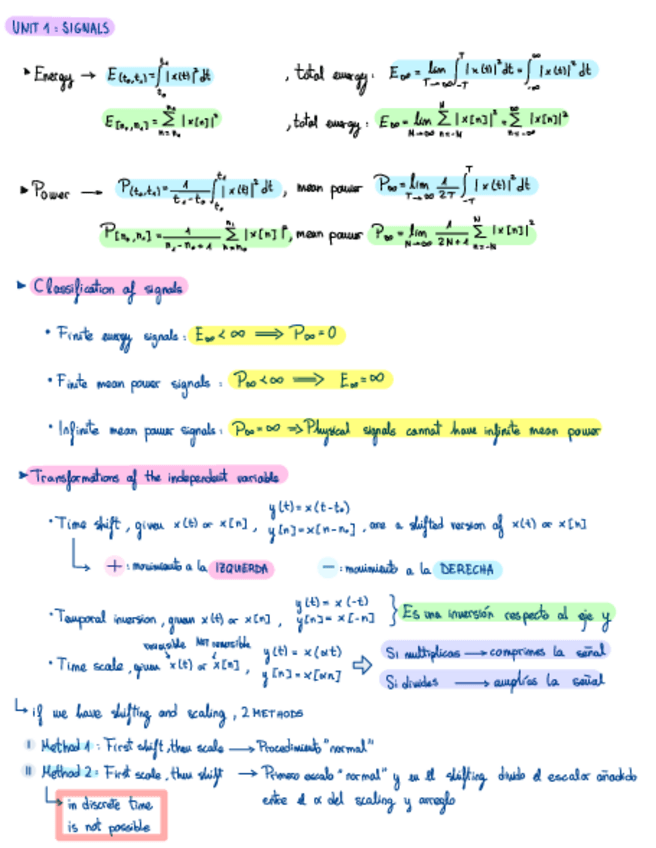 UNIT 1: SIGNALS
▸ Energy → E(t₀,t₁)=∫_{t₀}^{t₁} |x(t)|² dt , total energy: E∞ = lim_{T→∞} ∫_{-T}^{T} |x(t)|² dt = ∫_{-∞}^{∞} |x(t)|² dt
E[n₀,n₁] = Σ_{n=n₀}^{n₁} |x[n]|² , total energy: E∞ = lim_{N→∞} Σ_{n=-N}^{N} |x[n]|² = Σ_{n=-∞}^{∞} |x[n]|²
▸ Power → P(t₀,t₁) = 1/(t₁-t₀) ∫_{t₀}^{t₁} |x(t)|² dt , mean power P∞ = lim_{T→∞} 1/2T ∫_{-T}^{T} |x(t)|² dt
P[n₀,n₁] = 1/(n₁-n₀+1) Σ_{n=n₀}^{n₁} |x[n]|² , mean power P∞ = lim_{N→∞} 1/(2N+1) Σ_{n=-N}^{N} |x[n]|²
▸ Classification of signals
• Finite energy signals: E∞ < ∞ ⟹ P∞ = 0
• Finite mean power signals: P∞ < ∞ ⟹ E∞ = ∞
• Infinite mean power signals: P∞ = ∞ ⟹ Physical signals cannot have infinite mean power
▸ Transformations of the independent variable
• Time shift, given x(t) or x[n], y(t)=x(t-t₀)
y[n]=x[n-n₀], are a shifted version of x(t) or x[n]
+ : movimiento a la IZQUIERDA − : movimiento a la DERECHA
• Temporal inversion, given x(t) or x[n], y(t) = x(-t)
y[n] = x[-n] } Es una inversión respecto al eje y
reversible NOT reversible
• Time scale, given x(t) or x[n], y(t) = x(αt)
y[n] = x[αn] ⇨ Si multiplicas → comprimes la señal
Si divides → amplías la señal
↳ if we have shifting and scaling, 2 METHODS
I Method 1: First shift, then scale → Procedimiento "normal"
II Method 2: First scale, then shift → Primero escalo "normal" y en el shifting divido el escalar añadido
entre el α del scaling y arreglo
↳ in discrete time
is not possible